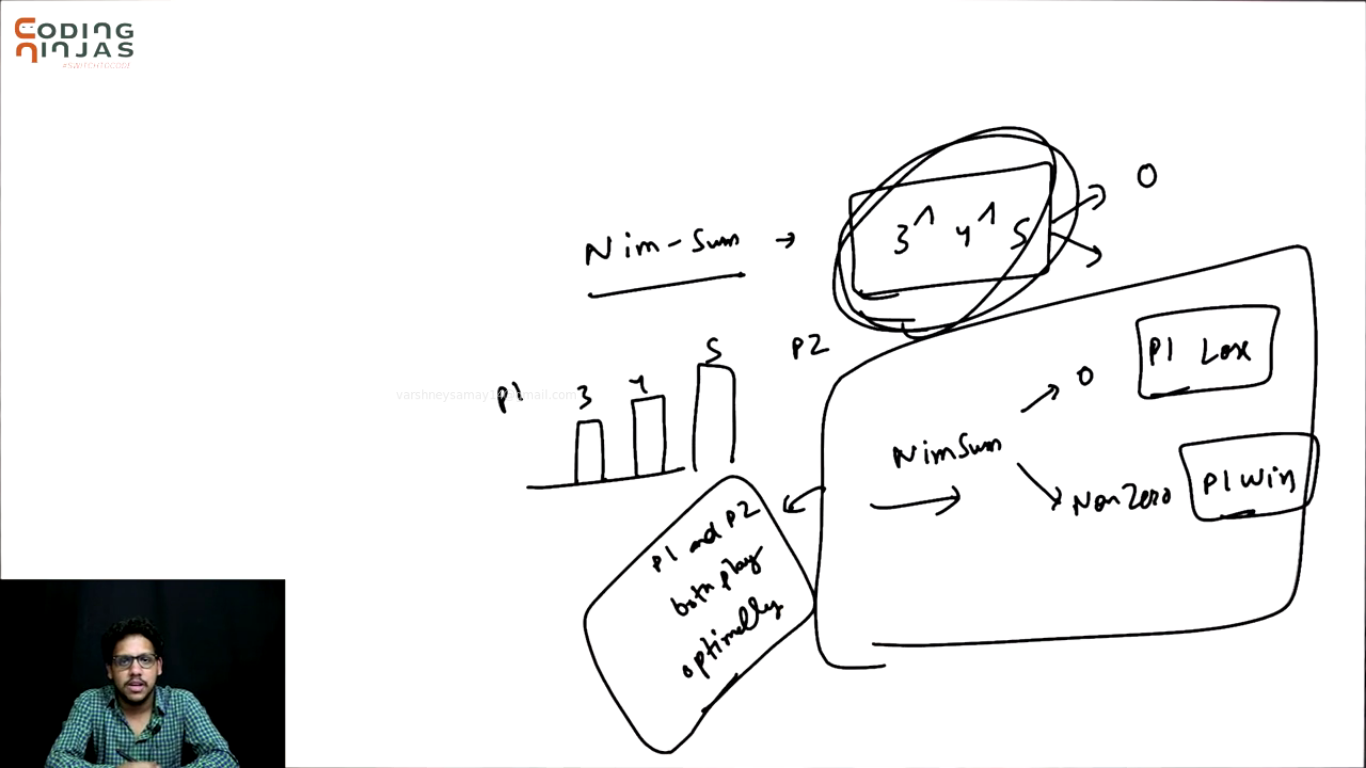 CODING
NINJAS
#SWITCHTOCODE
Nim-Sum → 3 ^ 4 ^ 5
0
P1
3 4 5
P2
varshneysamay14@gmail.com
NimSum
0
P1 Lose
NonZero
P1 Win
P1 and P2
both play
optimally